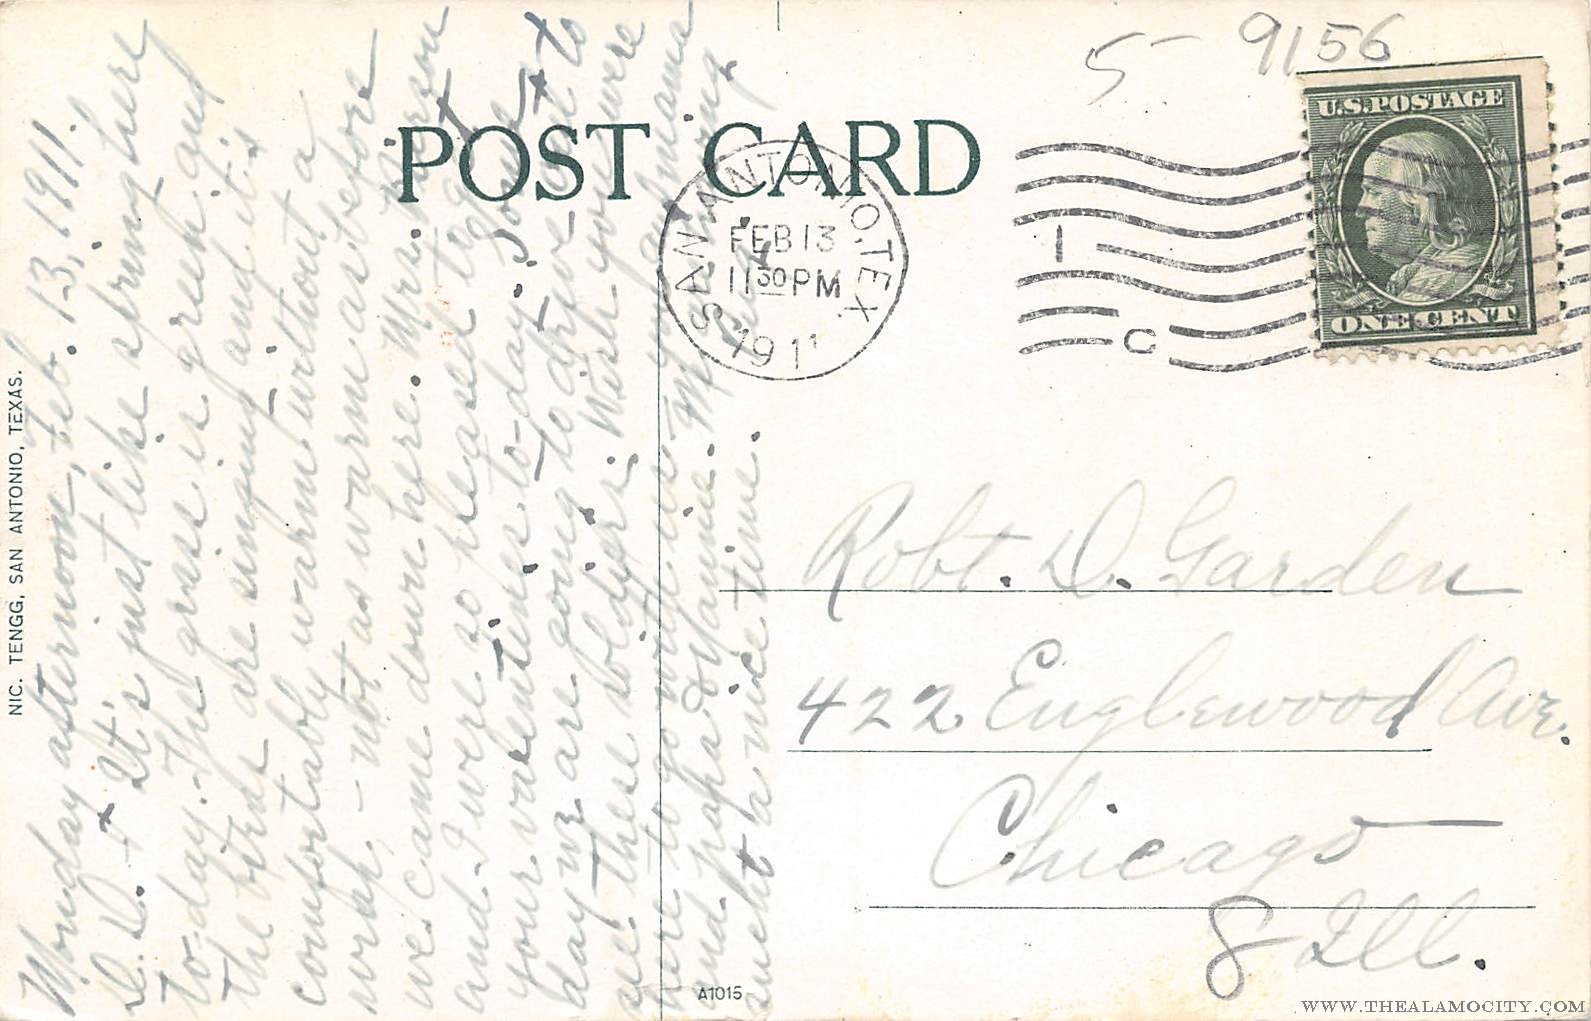 5- 9156
POST CARD
U.S. POSTAGE
ONE CENT
SAN ANTONIO, TEX.
FEB 13
11 30 PM
1911
1 C
NIC. TENGG, SAN ANTONIO, TEXAS.
Monday afternoon, Feb. 13, 1911.
D. D. - It's just like spring here
to-day. - The grass is green and
the birds are singing and it's
comfortably warm without a
wrap - not as warm as before
we came down here. Mrs.
and I were so pleased to get
your valentines to-day. Some
day we are going to drive out to
see these soldiers. Wish you were
here to go with us. My
and papa Dolarnie. Am having
such a nice time.
Robt. D. Garden
422 Englewood Ave.
Chicago
8 Ill.
A1015
WWW.THEALAMOCITY.COM